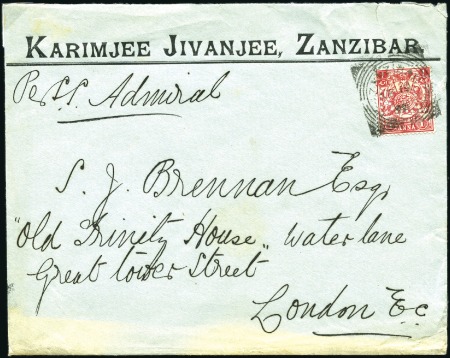 KARIMJEE JIVANJEE, ZANZIBAR.
Per S.S. Admiral
S. J. Brennan Esq.
"Old Trinity House" Water lane
Great tower Street
London E.C.